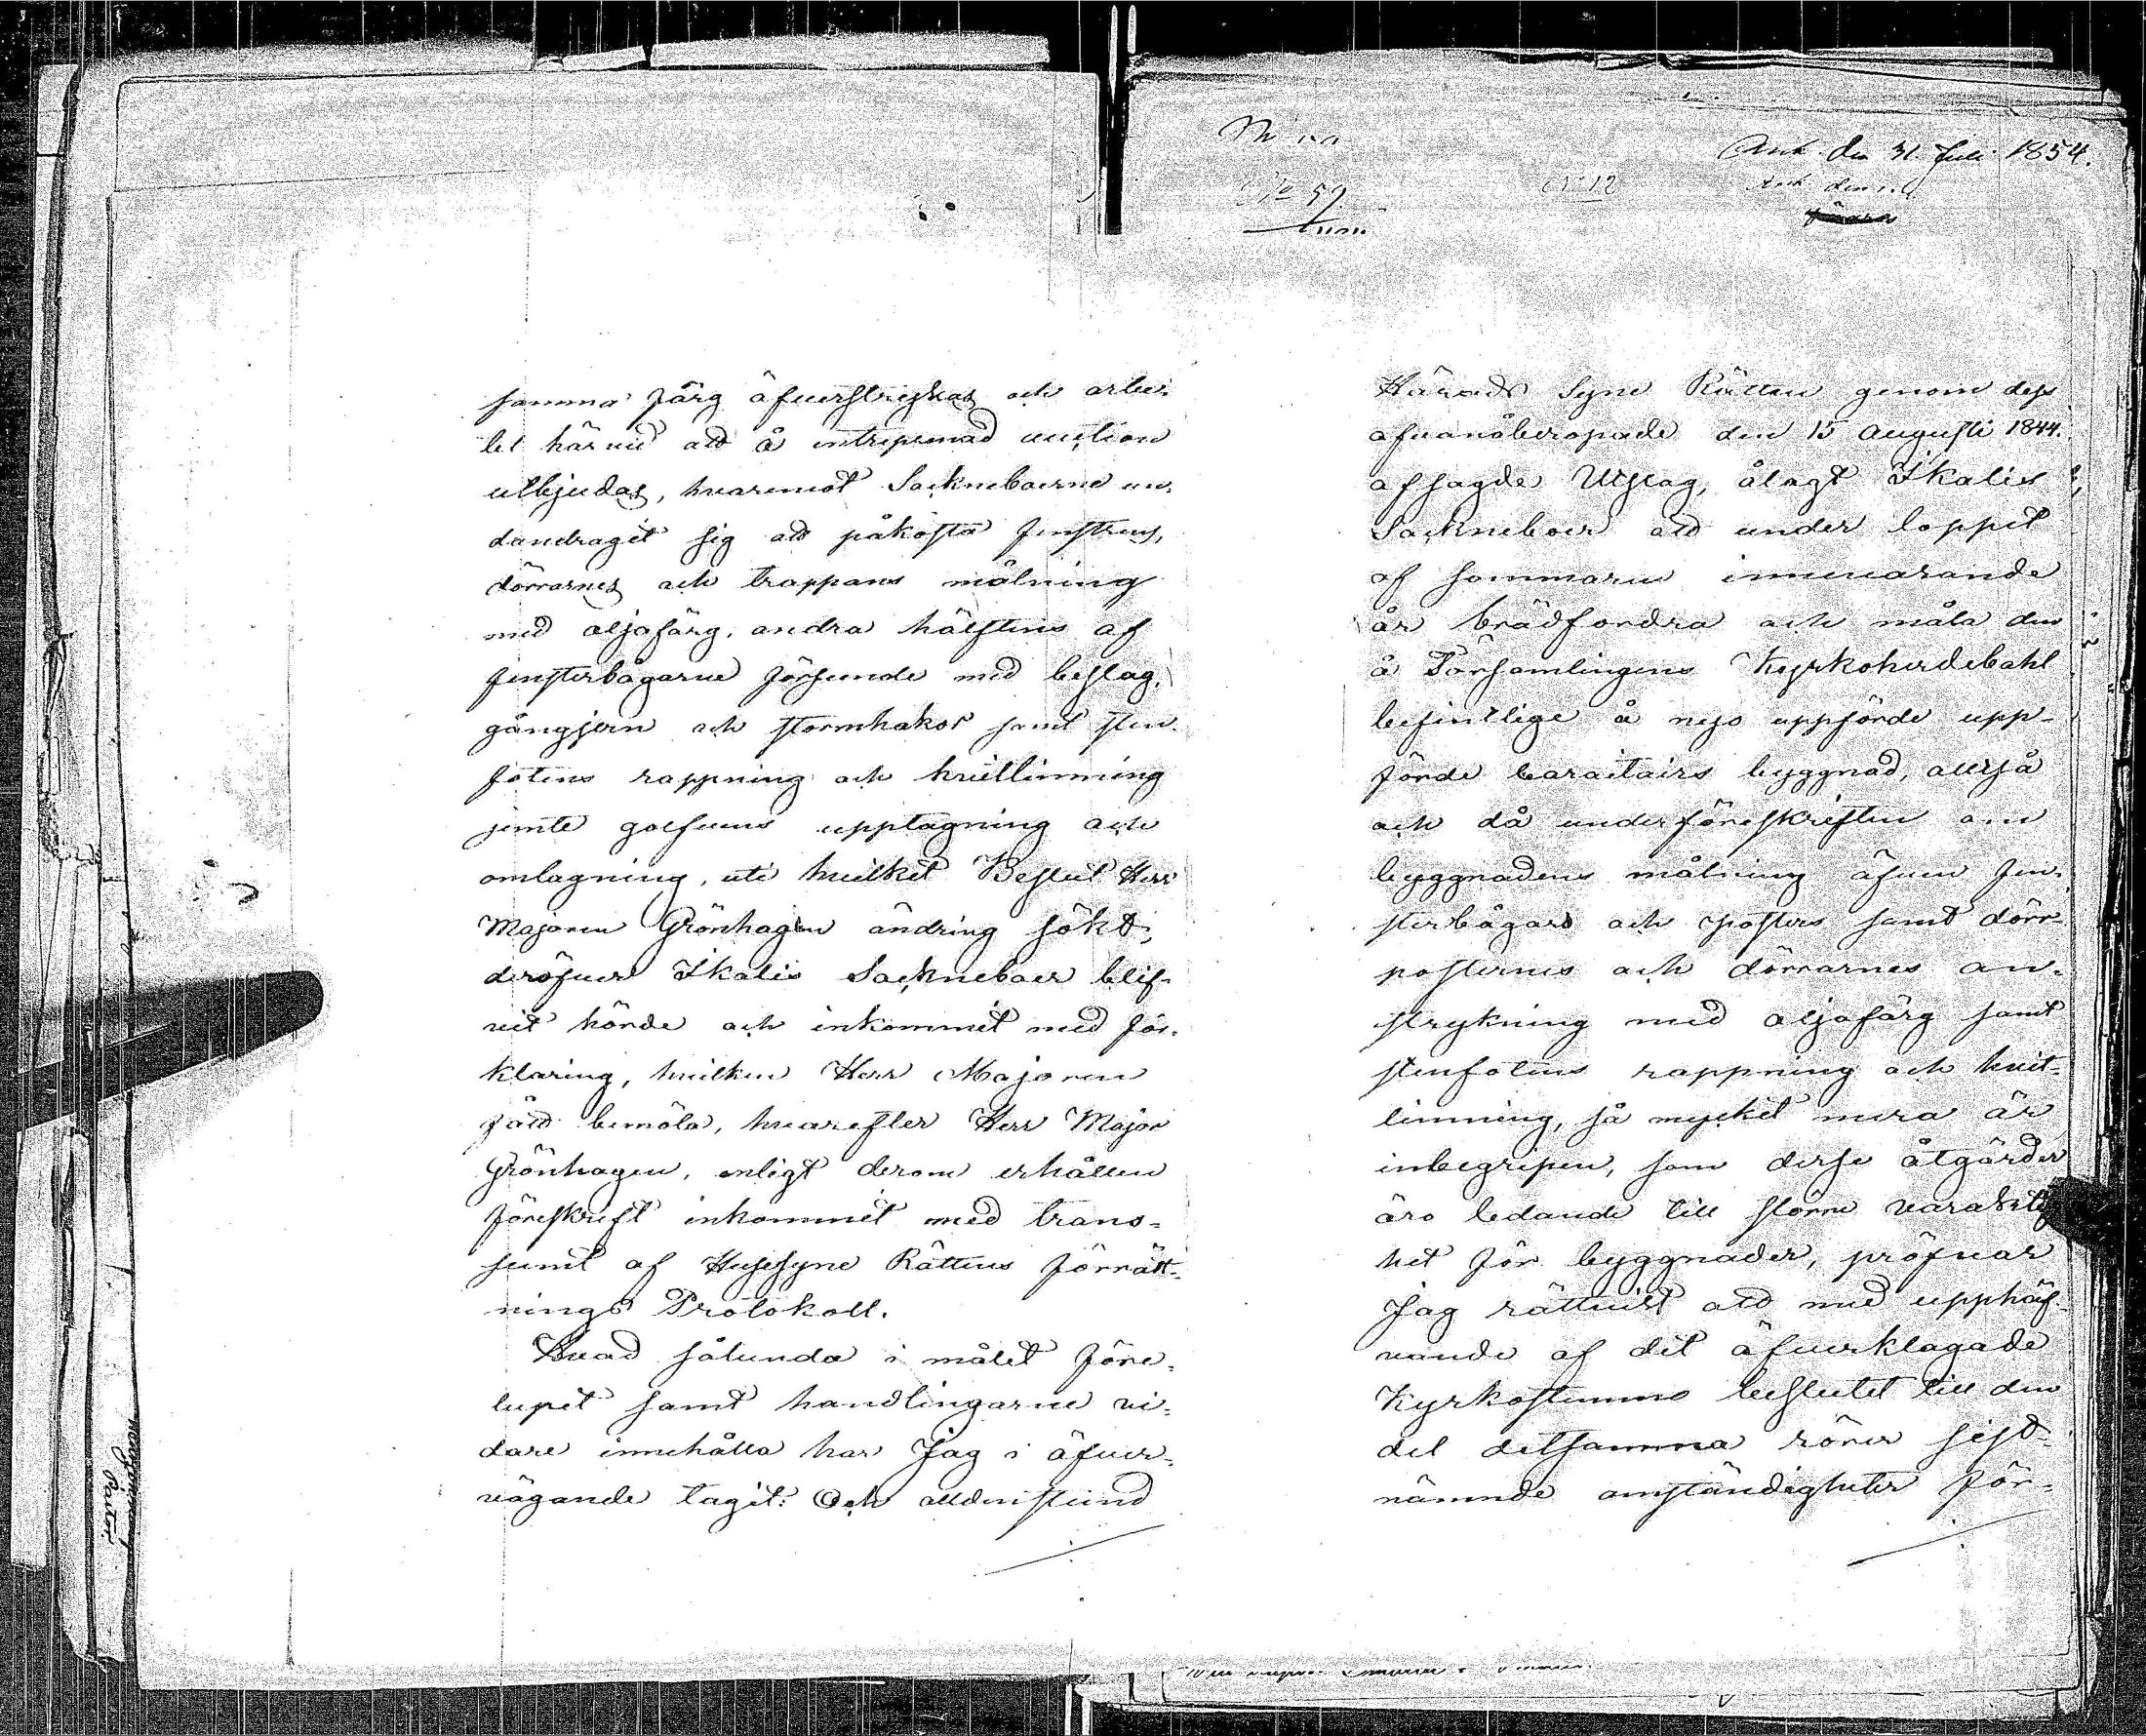 samma färg öfverstrykas och arbe-
tet härvid att å entreprenad auction
utbjudas, hvaremot Sockneboerne un-
dandragit sig att påkosta fenstrens,
dörrarnes och trappans målning
med oljofärg, andra hälftens af
fensterbågarne förseende med beslag,
gångjern och stormhakor samt sten-
fotens rappning och hvitlimning
jemte golfvens upptagning och
omlagning, uti hvilket Beslut Herr
Majoren Grönhagen ändring sökt,
deröfver Ikalis Socknebоer blif-
vit hörde och inkommit med för-
klaring, hvilken Herr Majoren
fått bemöta, hvarefter Herr Major
Grönhagen, enligt derom erhållen
föreskrift inkommit med trans-
sumt af Husesyne Rättens förrätt-
nings Protokoll.
Hvad sålunda i målet före-
lupit samt handlingarne vi-
dare innehålla har Jag i öfver-
vägande tagit: Och alldenstund
Ank. den 31 Juli 1854.
No 59
No 12
Ank. den
Härads Syne Rätten genom dess
ofvanåberopade den 15 Augusti 1844
afsagde Utslag, ålagt Ikalis
Socknebоer att under loppet
af sommaren innevarande
år brädfordra och måla den
å Församlingens Kyrkoherdebohl
befintlige å nyo uppförde upp-
förde karaktairs byggnad, alltså
och då under föreskriften om
byggnadens målning äfven fen-
sterbågars och posters samt dörr-
posternes och dörrarnes an-
strykning med oljofärg samt
stenfotens rappning och hvit-
limning, så mycket mera är
inbegripen, som desse åtgärder
äro ledande till större varaktig
het för byggnader, pröfvar
Jag rättvist att med upphäf-
vande af det öfverklagade
Kyrkostemmo beslutet till den
del detsamma rörer sist-
nämnde omständigheter för-